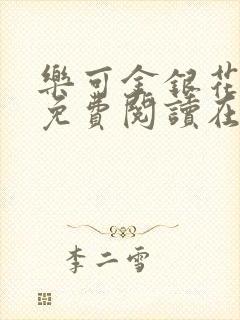 樂可金銀花
免費閱讀在
李二雪